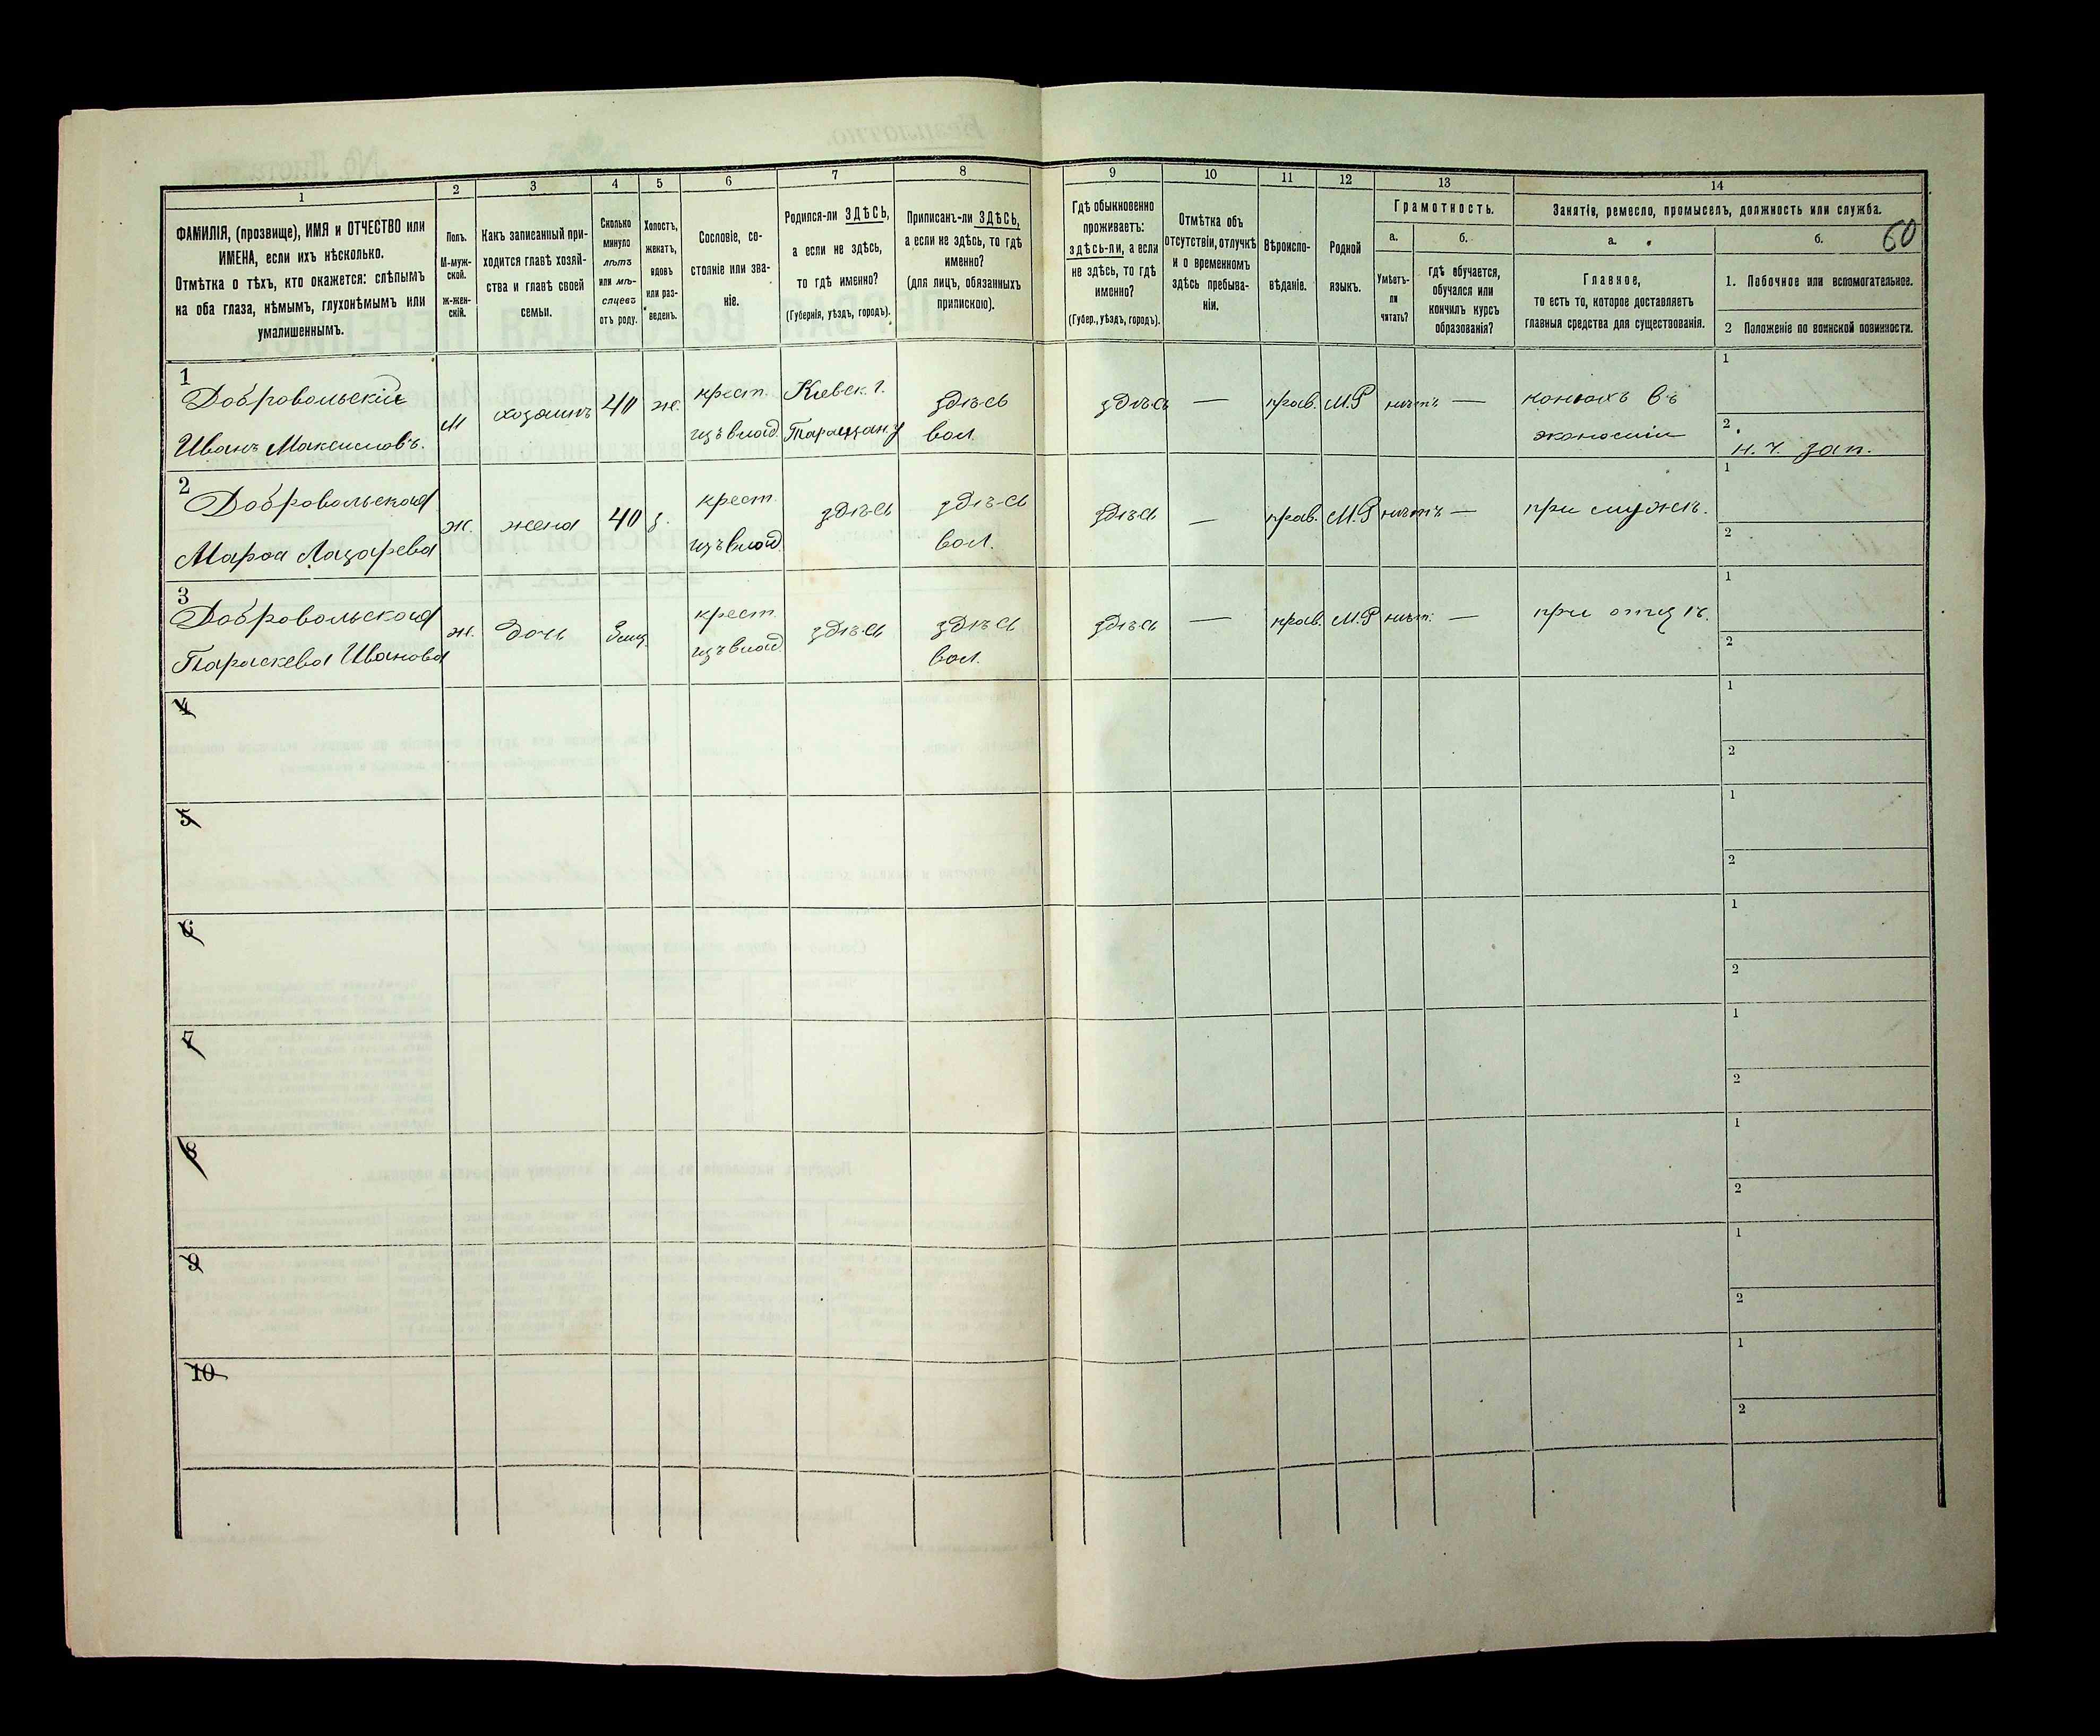 60
1
2
3
4
5
6
7
8
9
10
11
12
13
14
ФАМИЛІЯ, (прозвище), ИМЯ и ОТЧЕСТВО или
ИМЕНА, если ихъ нѣсколько.
Отмѣтка о тѣхъ, кто окажется: слѣпымъ
на оба глаза, нѣмымъ, глухонѣмымъ или
умалишеннымъ.
Полъ.
М-муж-
ской.
ж-жен-
скій.
Какъ записанный при-
ходится главѣ хозяй-
ства и главѣ своей
семьи.
Сколько
минуло
лѣтъ
или мѣ-
сяцевъ
отъ роду.
Холостъ,
женатъ,
вдовъ
или раз-
веденъ.
Сословіе, со-
стояніе или зва-
ніе.
Родился-ли ЗДѢСЬ,
а если не здѣсь,
то гдѣ именно?
(Губернія, уѣздъ, городъ).
Приписанъ-ли ЗДѢСЬ,
а если не здѣсь, то гдѣ
именно?
(для лицъ, обязанныхъ
припискою).
Гдѣ обыкновенно
проживаетъ:
здѣсь-ли, а если
не здѣсь, то гдѣ
именно?
(Губер., уѣздъ, городъ).
Отмѣтка объ
отсутствіи, отлучкѣ
и о временномъ
здѣсь пребыва-
ніи.
Вѣроиспо-
вѣданіе.
Родной
языкъ.
Грамотность.
а.
б.
Умѣетъ-
ли
читать?
гдѣ обучается,
обучался или
кончилъ курсъ
образованія?
Занятіе, ремесло, промыселъ, должность или служба.
а.
б.
Главное,
то есть то, которое доставляетъ
главныя средства для существованія.
1. Побочное или вспомогательное.
2 Положеніе по воинской повинности.
1
Добровольскій
Иванъ Максимовъ.
М
хозяинъ
40
ж.
крест.
изъ влад.
Кіевск. г.
Таращан. у
здѣсь
вол.
здѣсь
—
прав.
М.Р
нѣтъ
—
конюхъ въ
экономіи
1
2
н. ч. зап.
2
Добровольская
Марѳа Лазарева
ж.
жена
40
з.
крест.
изъ влад.
здѣсь
здѣсь
вол.
здѣсь
—
прав.
М.Р
нѣтъ
—
при мужѣ.
1
2
3
Добровольская
Параскева Иванова
ж.
дочь
3 мѣц.
крест.
изъ влад.
здѣсь
здѣсь
вол.
здѣсь
—
прав.
М.Р
нѣт.
—
при отцѣ.
1
2
4
1
2
5
1
2
6
1
2
7
1
2
8
1
2
9
1
2
10
1
2